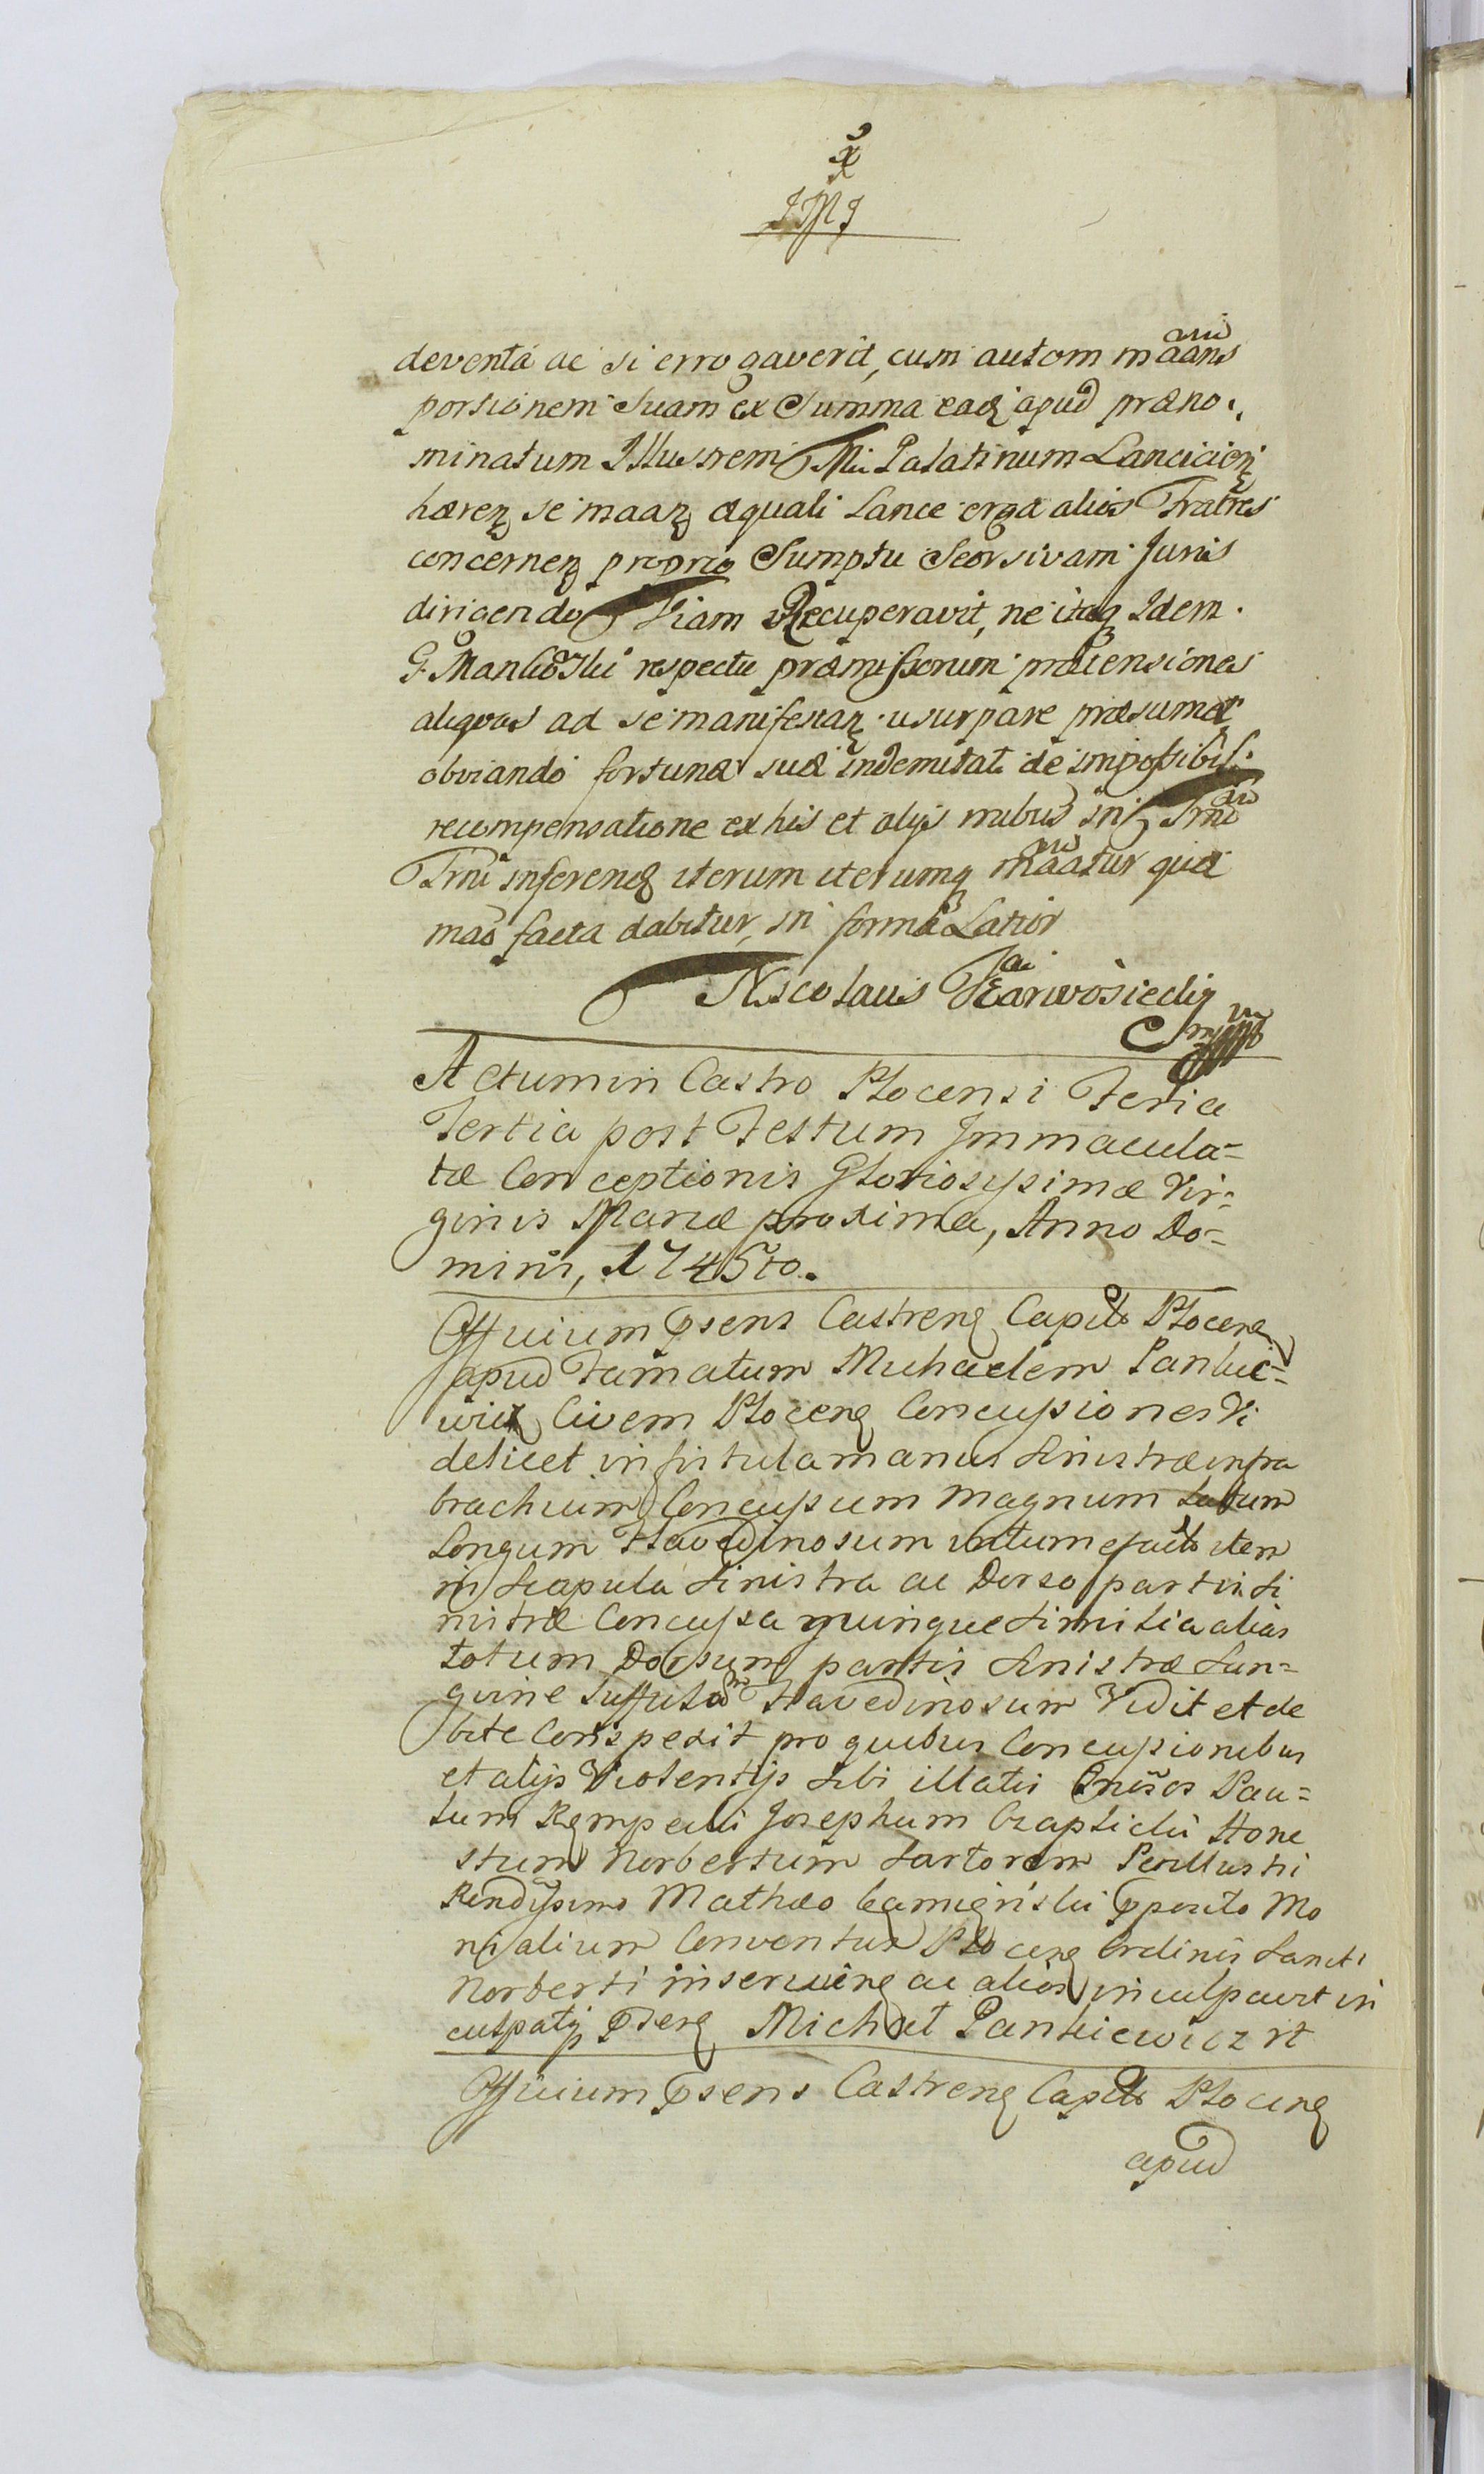 JMJ
deventa ac si errogaverit, cum autem maans
portionem Suam ex Summa eadę apud præno
minatum Illustrem Mu Palatinum Lancicien
haren se maan æquali Lance erga alios Fratres
concernen proprio Sumptu Seorsivam Juris
dirigendo Viam Recuperavit, ne itaq Idem
G. Mankoski respectu præmissorum prætensiones
aliquas ad se manifestan usurpare præsumat
obviando fortunæ suæ indemitati de impossibil
recompensatione ex his et alijs
Trni inferend iterum iterumq maatur quæ
mao facta dabitur, in forma Latior
Nicolaus Karwosiecki
Actum in Castro Plocensi Feria
Tertia post Festum Immacula=
tæ Conceptionis Gloriosissimæ Vir=
ginis Mariæ proxima, Anno Do=
mini, 1745to.
Officium psens Castren Capitle Plocen
apud Famatum Michaelem Pankie=
wicz Civem Plocen Concussiones Vi
delicet in fistula manus sinistræ infra
brachium Concussum magnum Latum
Longum Flavedinosum intumefactu item
in Scapula sinistra ac Dorso partis si
nistræ Concussa quinque similia alias
totum Dorsum partis sinistræ San=
guine suffusum Flavedinosum Vidit et de
bite Conspexit pro quibus Concussionibus
et alijs Violentijs sibi illatis Gnisos Pau=
lum Rempalli Josephum Czaplicki Hone
stum Norbertum Sartorem Perillustri
Rendissimo Mathæo ppsito Mo
nialium Conventus Plocen Ordinis Sancti
Norberti inservien ac alios inculpavit in
culpatq pden Michał Pankiewicz rt
Officium psens Castren Capitle Plocen
apud